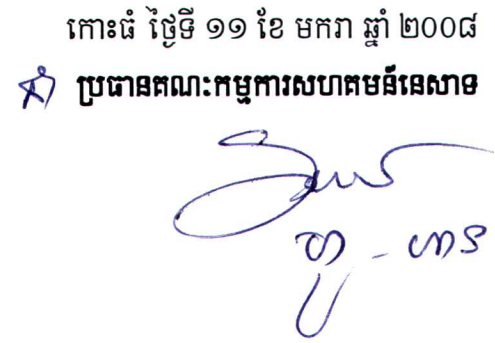 កោះធំ ថ្ងៃទី ១១ ខែ មករា ឆ្នាំ ២០០៨
ប្រធានគណៈកម្មការសហគមន៍នេសាទ